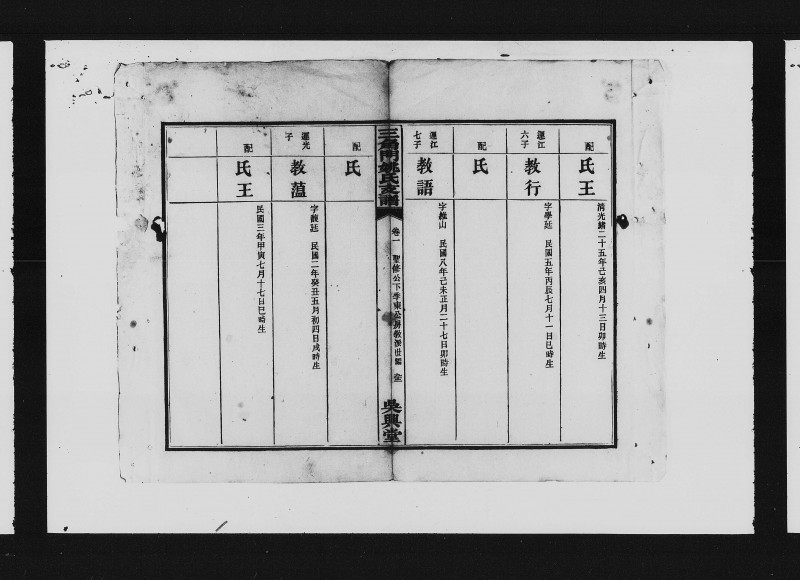 配
氏王
清光緒二十五年己亥四月十三日卯時生
邐江六子
教行
字學廷 民國五年丙辰七月十一日巳時生
配
氏
邐江七子
教語
字維山 民國八年己未正月二十七日卯時生
姚氏支譜
卷一 聖修公下季東公房教派世編
吳興堂
配
氏
邐光子
教蘊
民國二年癸丑五月初四日戌時生
配
氏王
民國三年甲寅七月十七日巳時生